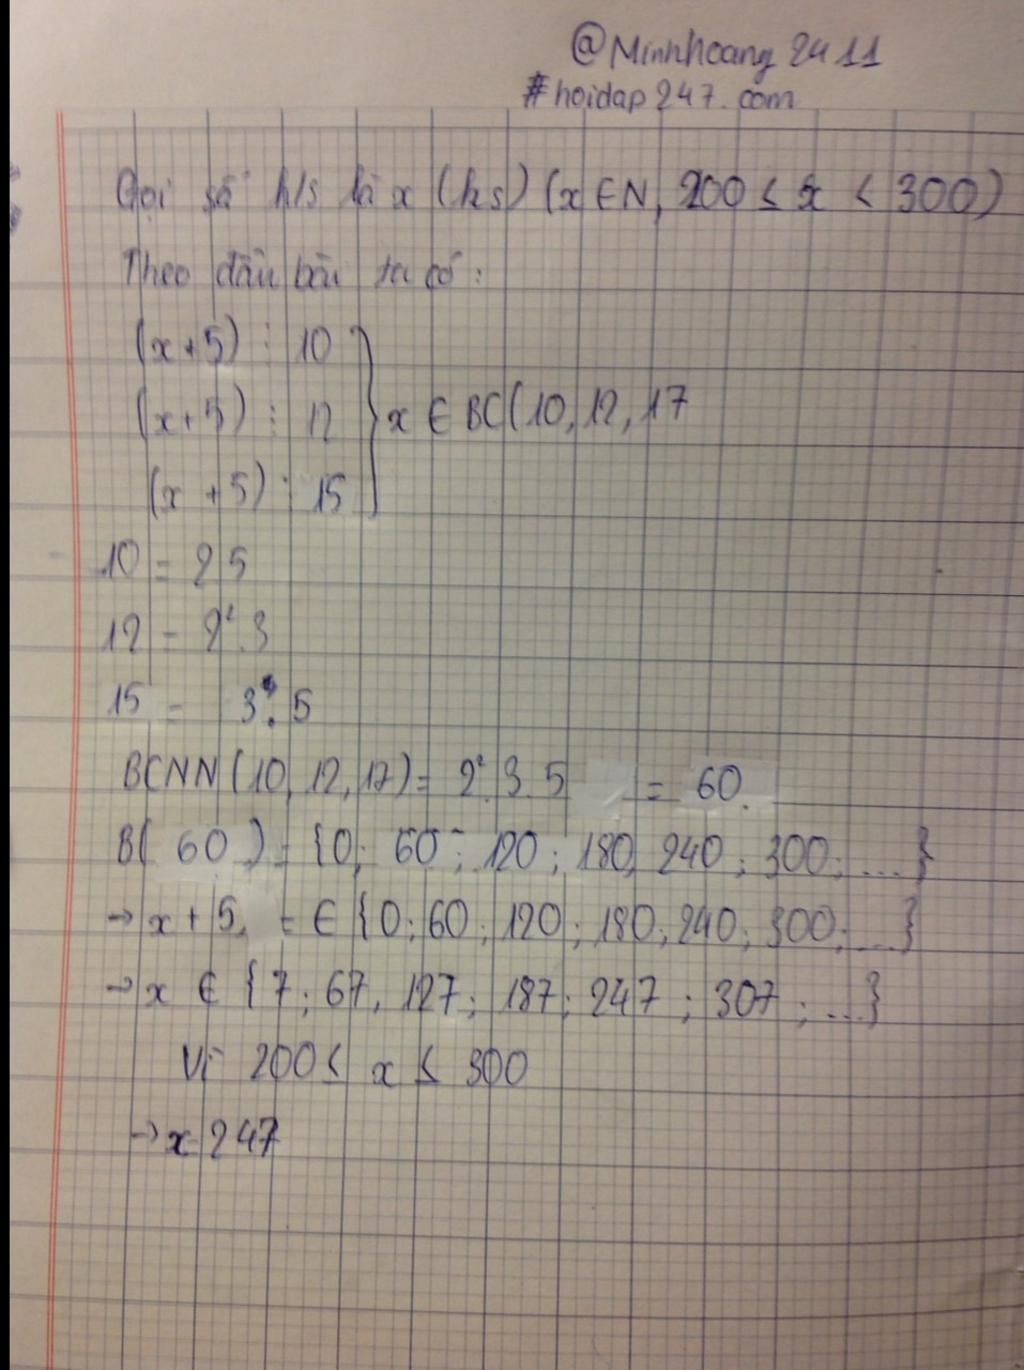 @Minhhoang2411
#hoidap247.com
Gọi số h/s là x (hs) (x ∈ N, 200 ≤ x < 300)
Theo đầu bài ta có:
(x+5) ⋮ 10
(x+5) ⋮ 12 } x ∈ BC(10, 12, 17
(x+5) ⋮ 15
10 = 2 5
12 = 2².3
15 = 3.5
BCNN(10, 12, 17) = 2².3.5 = 60.
B(60) = {0; 60; 120; 180; 240; 300; ...}
→ x + 5 = ∈ {0; 60; 120; 180; 240; 300; ...}
→ x ∈ {7; 67, 127; 187; 247; 307; ...}
Vì 200 ≤ x ≤ 300
→ x 247